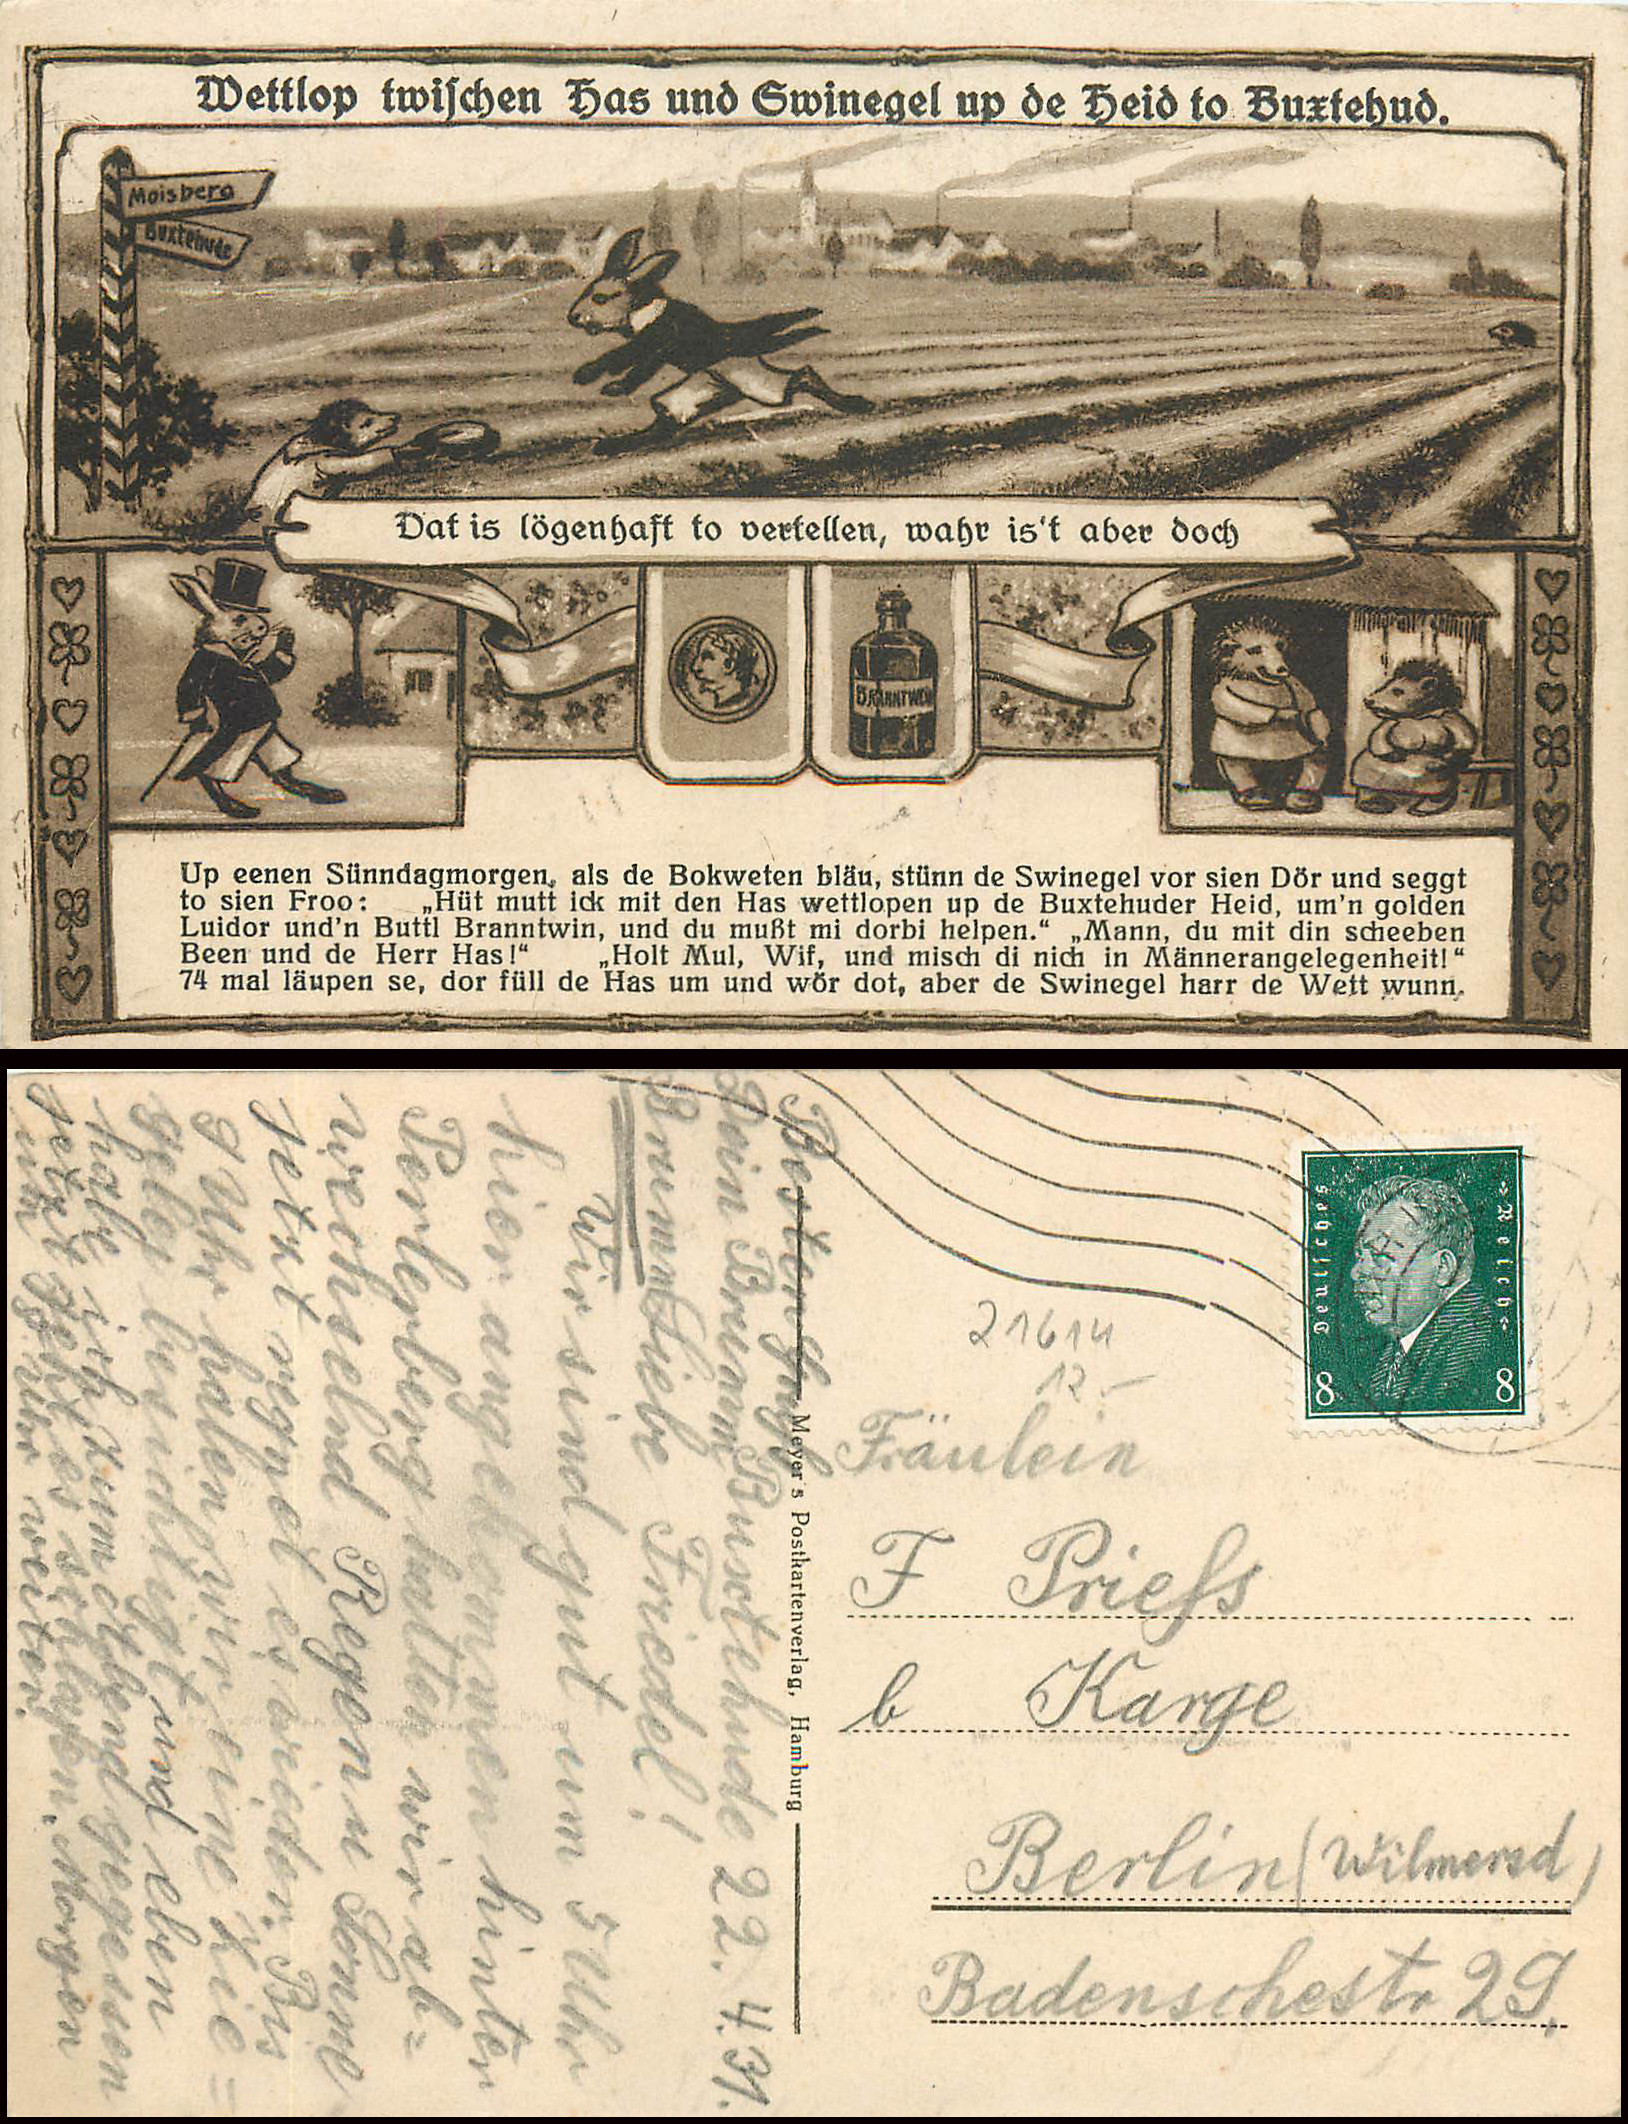 Wettlop twischen Has und Swinegel up de Heid to Buxtehud.
Moisberg
Buxtehude
Dat is lögenhaft to vertellen, wahr is't aber doch
BRANNTWEIN
Up eenen Sünndagmorgen, als de Bokweten bläu, stünn de Swinegel vor sien Dör und seggt
to sien Froo: „Hüt mutt ick mit den Has wettlopen up de Buxtehuder Heid, um'n golden
Luidor und'n Buttl Branntwin, und du mußt mi dorbi helpen.“ „Mann, du mit din scheeben
Been und de Herr Has!“ „Holt Mul, Wif, und misch di nich in Männerangelegenheit!“
74 mal läupen se, dor füll de Has um und wör dot, aber de Swinegel harr de Wett wunn.
Deutsches Reich
8 8
21614
12.-
Fräulein
F Priefs
b Karge
Berlin (Wilmersd)
Badenschestr 29.
Meyer's Postkartenverlag, Hamburg
Buxtehude 22. 4. 31.
Liebe Friedel!
Wir sind gut um 5 Uhr
hier angekommen hinter
Perleberg hatten wir ab=
wechselnd Regen u Sonne
jetzt regnet es wieder. Bis
9 Uhr haben wir eine Zie=
gelei besichtigt und eben
habe ich zum Abend gegessen
jetzt geht es schlafen. Morgen
um Uhr weiter.
Besten
Dein Bruder